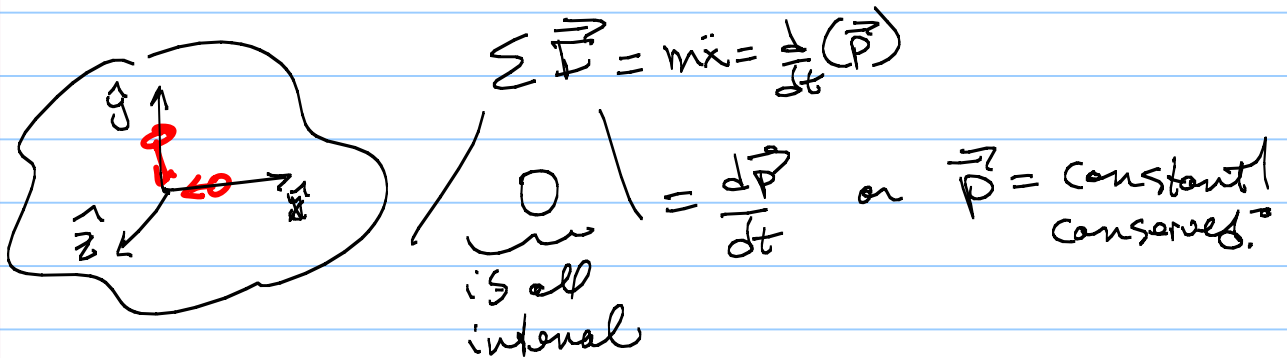 Σ F⃗ = mẍ = d/dt (p⃗)
ŷ
0 = dp⃗/dt or p⃗ = constant
ẑ
conserved.
is all
internal